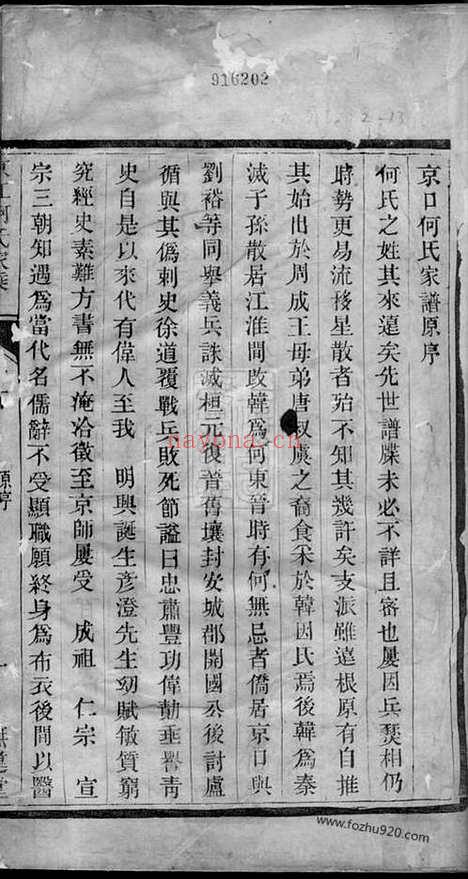 916202
京口何氏家譜原序
何氏之姓其來遠矣先世譜牒未必不詳且密也屢因兵燹相仍
時勢更易流移星散者殆不知其幾許矣支派雖遠根原有自推
其始出於周成王母弟唐叔虞之裔食采於韓因氏焉後韓爲秦
滅子孫散居江淮間改韓爲何東晉時有何無忌者僑居京口與
劉裕等同舉義兵誅滅桓元復晉舊壤封安城郡開國公後討盧
循與其僞刺史徐道覆戰兵敗死節謚曰忠肅豐功偉勳垂譽青
史自是以來代有偉人至我 明興誕生彥澄先生幼賦敏質窮
究經史素難方書無不淹洽徵至京師屢受 成祖 仁宗 宣
宗三朝知遇爲當代名儒辭不受顯職願終身爲布衣後間以醫
原序
一
nayona.cn
www.fozhu920.com